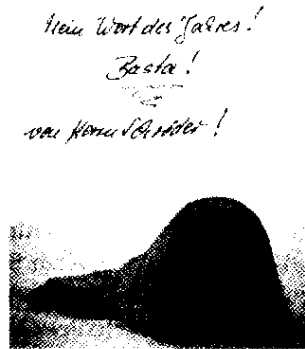 Mein Wort des Jahres!
Basta!
von Herrn Schröder!